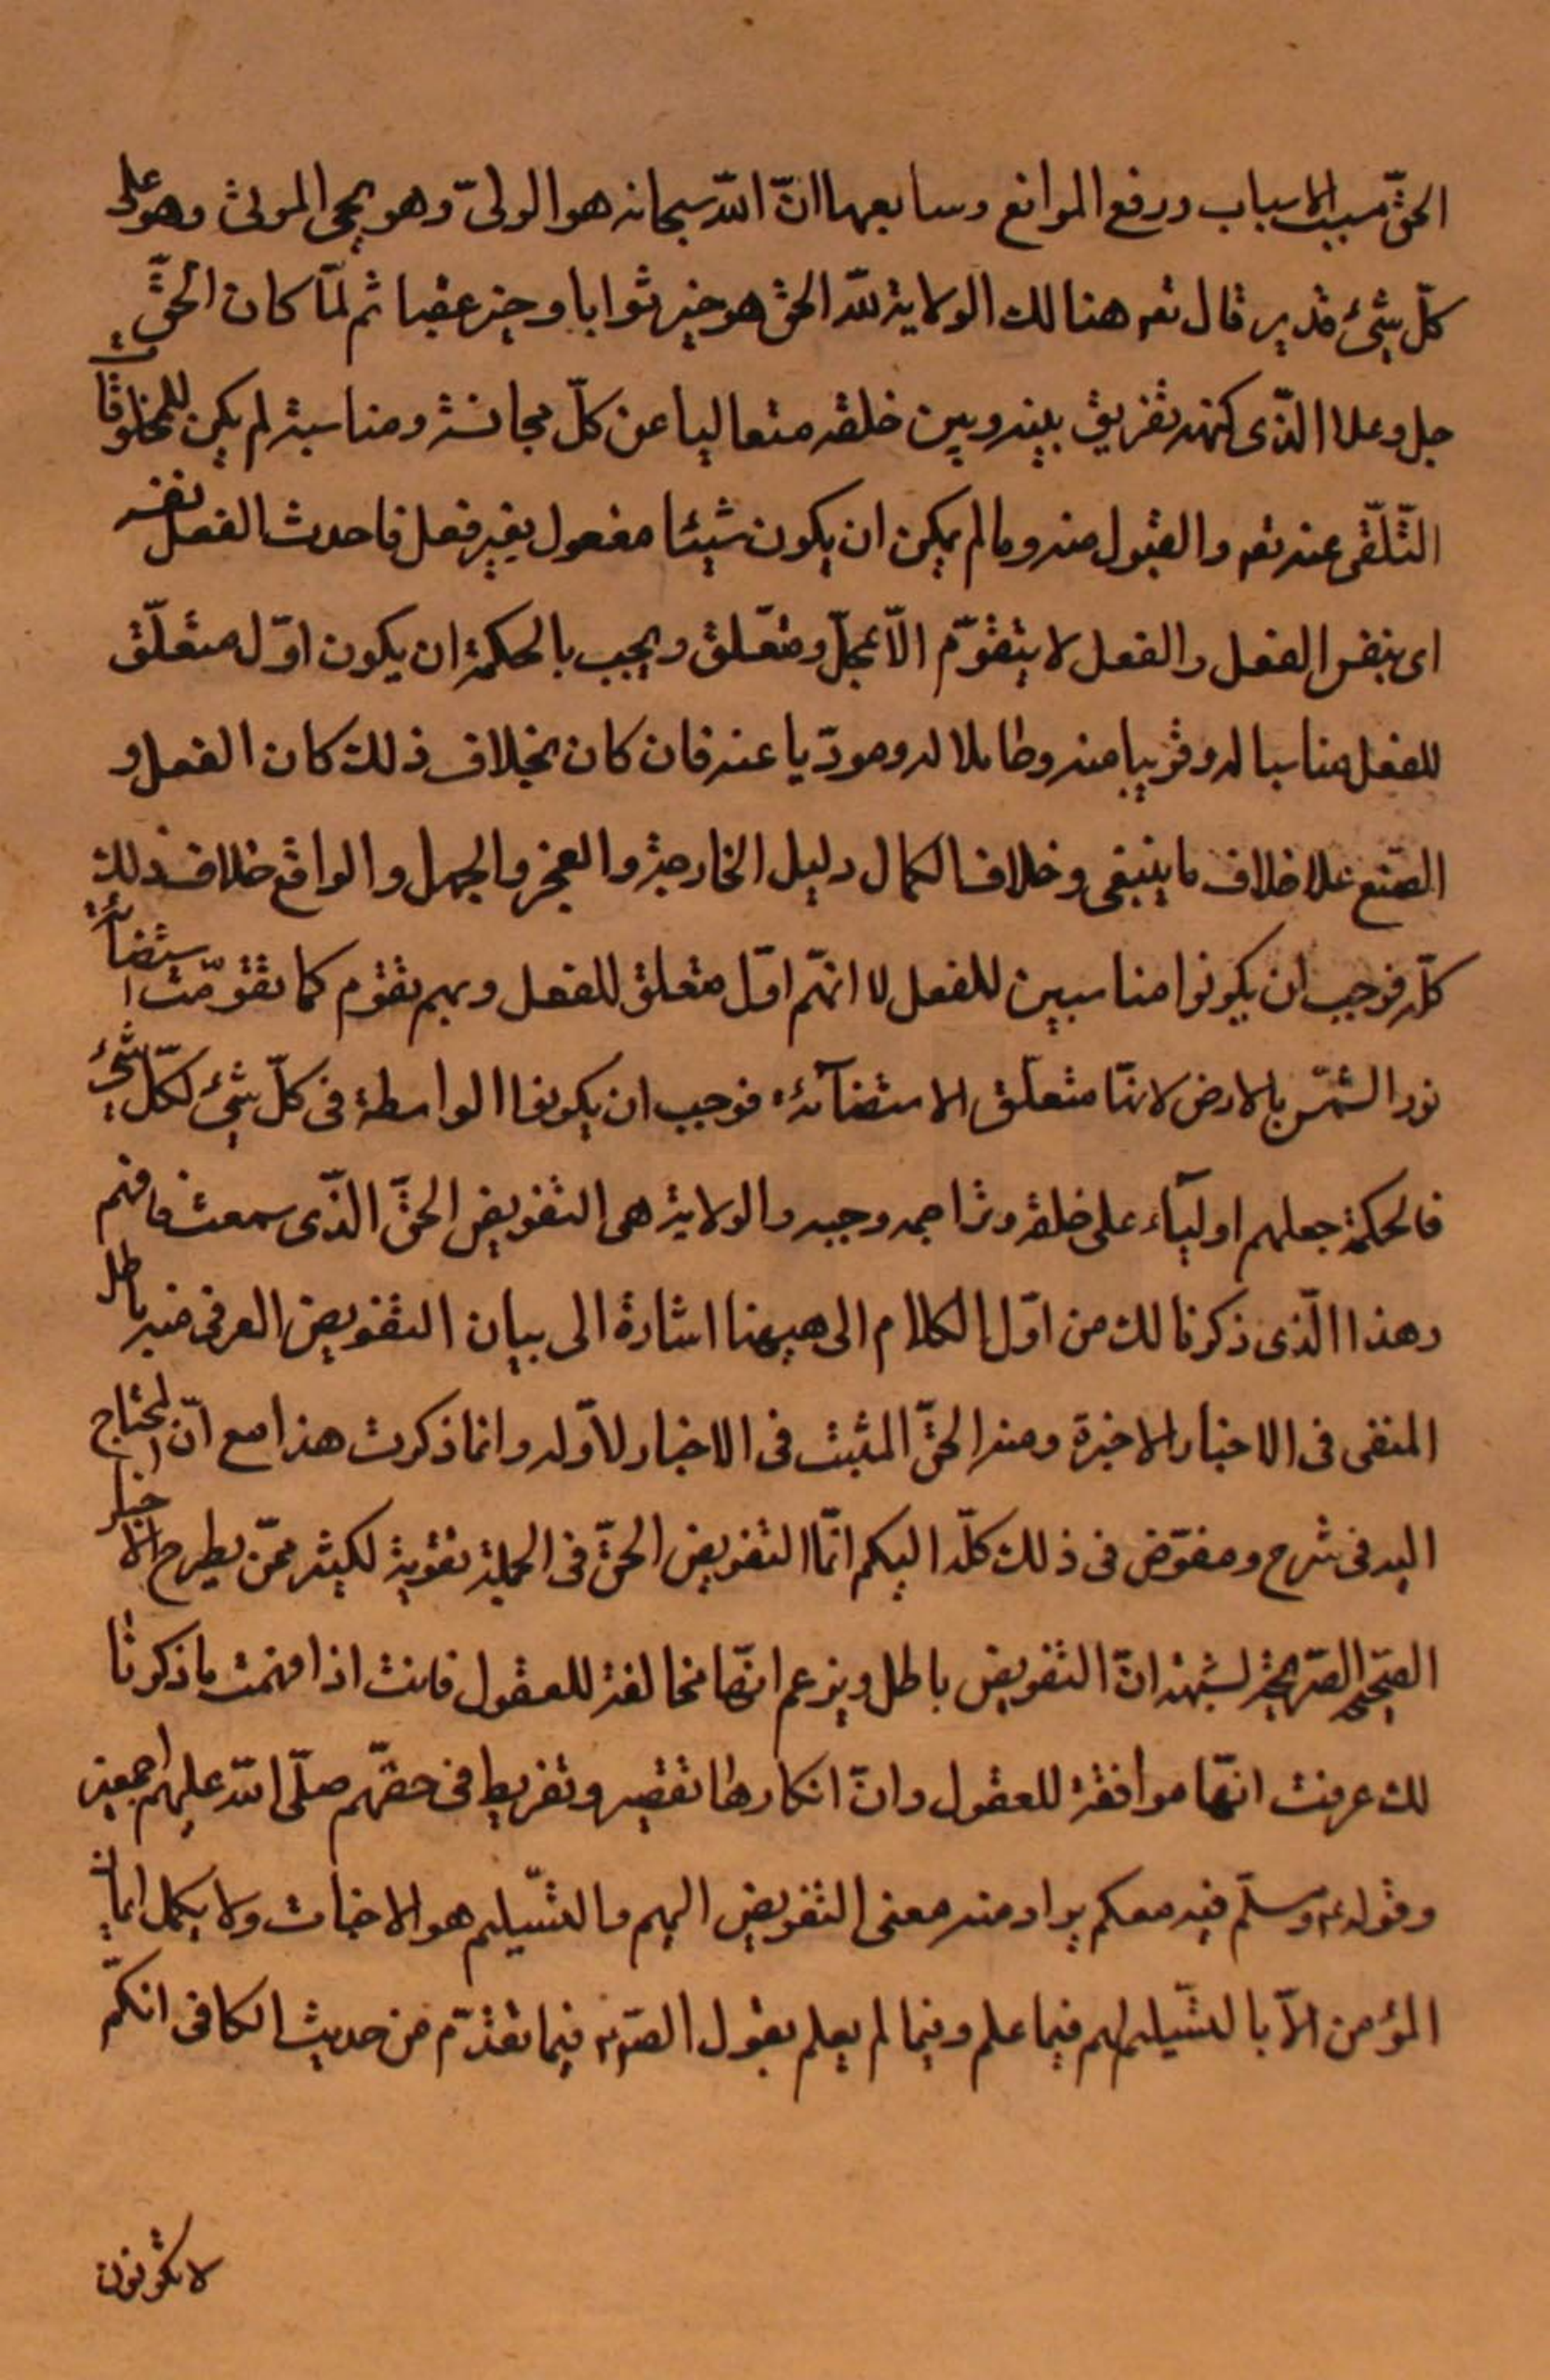 الحقّ مسبب الاسباب ورفع الموانع وسابعها انّ الله سبحانه هو الولىّ وهو يحيى الموتى وهو على
كلّ شئ قدير قال تعه هنالك الولاية لله الحق هو خير ثوابا وخير عقبا ثم لمّا كان الحقّ
جل وعلا الذّى كنهه تفريق بينه وبين خلقه متعاليا عن كلّ مجانسة ومناسبة لم يكن للمخلوقات
التّلقّى عنه تعه والقبول منه وما لم يمكن ان يكون شيئا مفعول بغير فعل فاحدث الفعل بنفسه
اى بنفس الفعل والفعل لا يتقوّم الاّ بمحلّ ومتعّلق ويجب بالحكمة ان يكون اوّل متعلّق
للفعل مناسبا له وقريبا منه وحاملا له ومودّيا عنه فان كان بخلاف ذلك كان الفعل و
الصّنع علا خلاف ما ينبغى وخلاف الكمال دليل الخارجية والعجز والجهل والواقع خلاف ذلك
كلّه فوجب ان يكونوا مناسبين للفعل لا انهّم اوّل متعلق للفعل وبهم تقوّم كما تقوّمت استضآئة
نور الشّمس بالارض لانهّا متعلّق الاستضآئة فوجب ان يكونوا الواسطة فى كلّ شئ لكلّ شئ
فالحكمة جعلهم اوليآء على خلقه وتراجمه وحيه والولاية هى التفويض الحقّ الذّى سمعت فافهم
وهذا الّذى ذكرنا لك من اوّل الكلام الى هيهنا اشارة الى بيان التفويض العرفى منه باطل
المنفى فى الاخبار الاخيرة ومنه الحقّ المثبت فى الاخبار لاوّله وانما ذكرت هذا مع انّ المحتاج
اليه فى شرح ومفوّض فى ذلك كلّه اليكم انمّا التفويض الحقّ فى الجملة تقوية لكثير ممّن يطرح الاخبار
الصّحيحة الصّريحة لشبهة انّ التفويض باطل ويزعم انهّا مخالفة للعقول فانت اذا فهمت ما ذكرنا
لك عرفت انهّا موافقة للعقول وانّ انكارها تقصير وتفريط فى حقهّم صلّى الله عليهم اجمعين
وقوله ع وسلّم فيه معكم يراد منه معنى التفويض اليهم والتّسليم هو الاخبات ولا يكمل ايمان
المؤمن الاّ بالتّسليم لهم فيما علم وفيما لم يعلم بقول الصّ ع فيما تقدّم من حديث الكافى انكمّ
لا تكونون